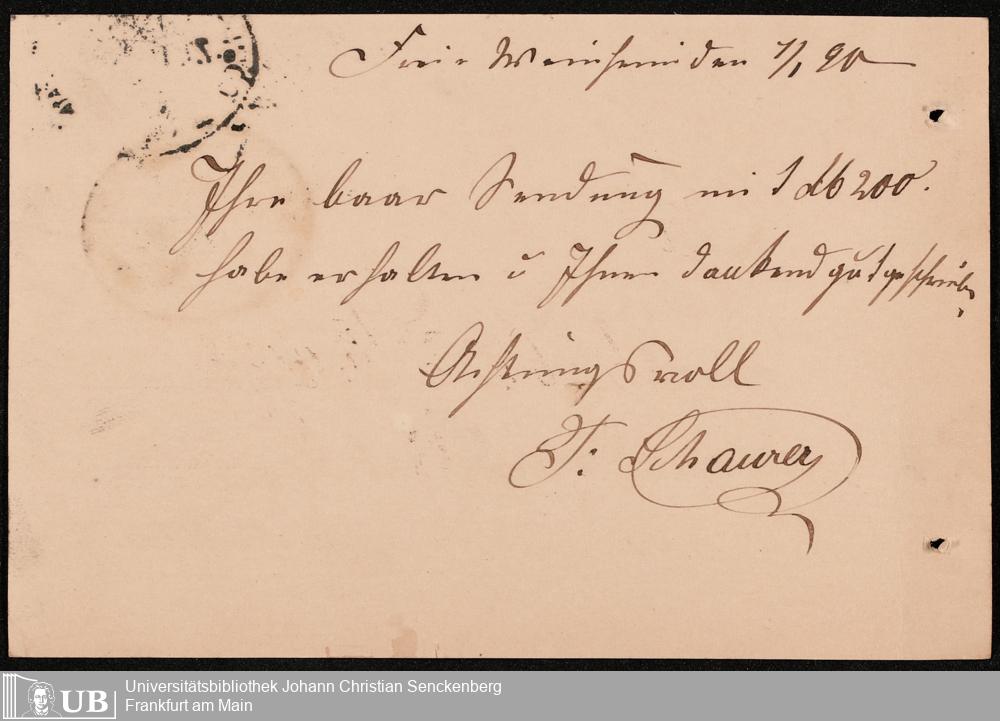 Frei-Weinheim den 7/1 90
Ihre baar Sendung mit ℳ 200.
habe erhalten u Ihnen dankend gutgeschrieben,
Achtungsvoll
F: Schaurer
UB
Universitätsbibliothek Johann Christian Senckenberg
Frankfurt am Main